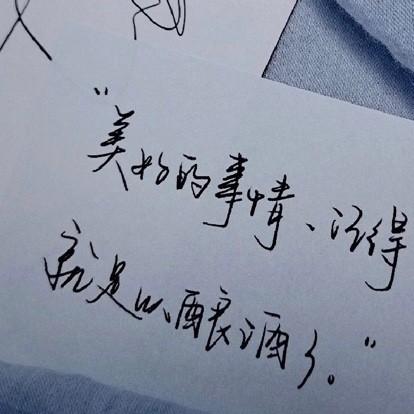 “美好的事情、记得
就足以酿酒了。”